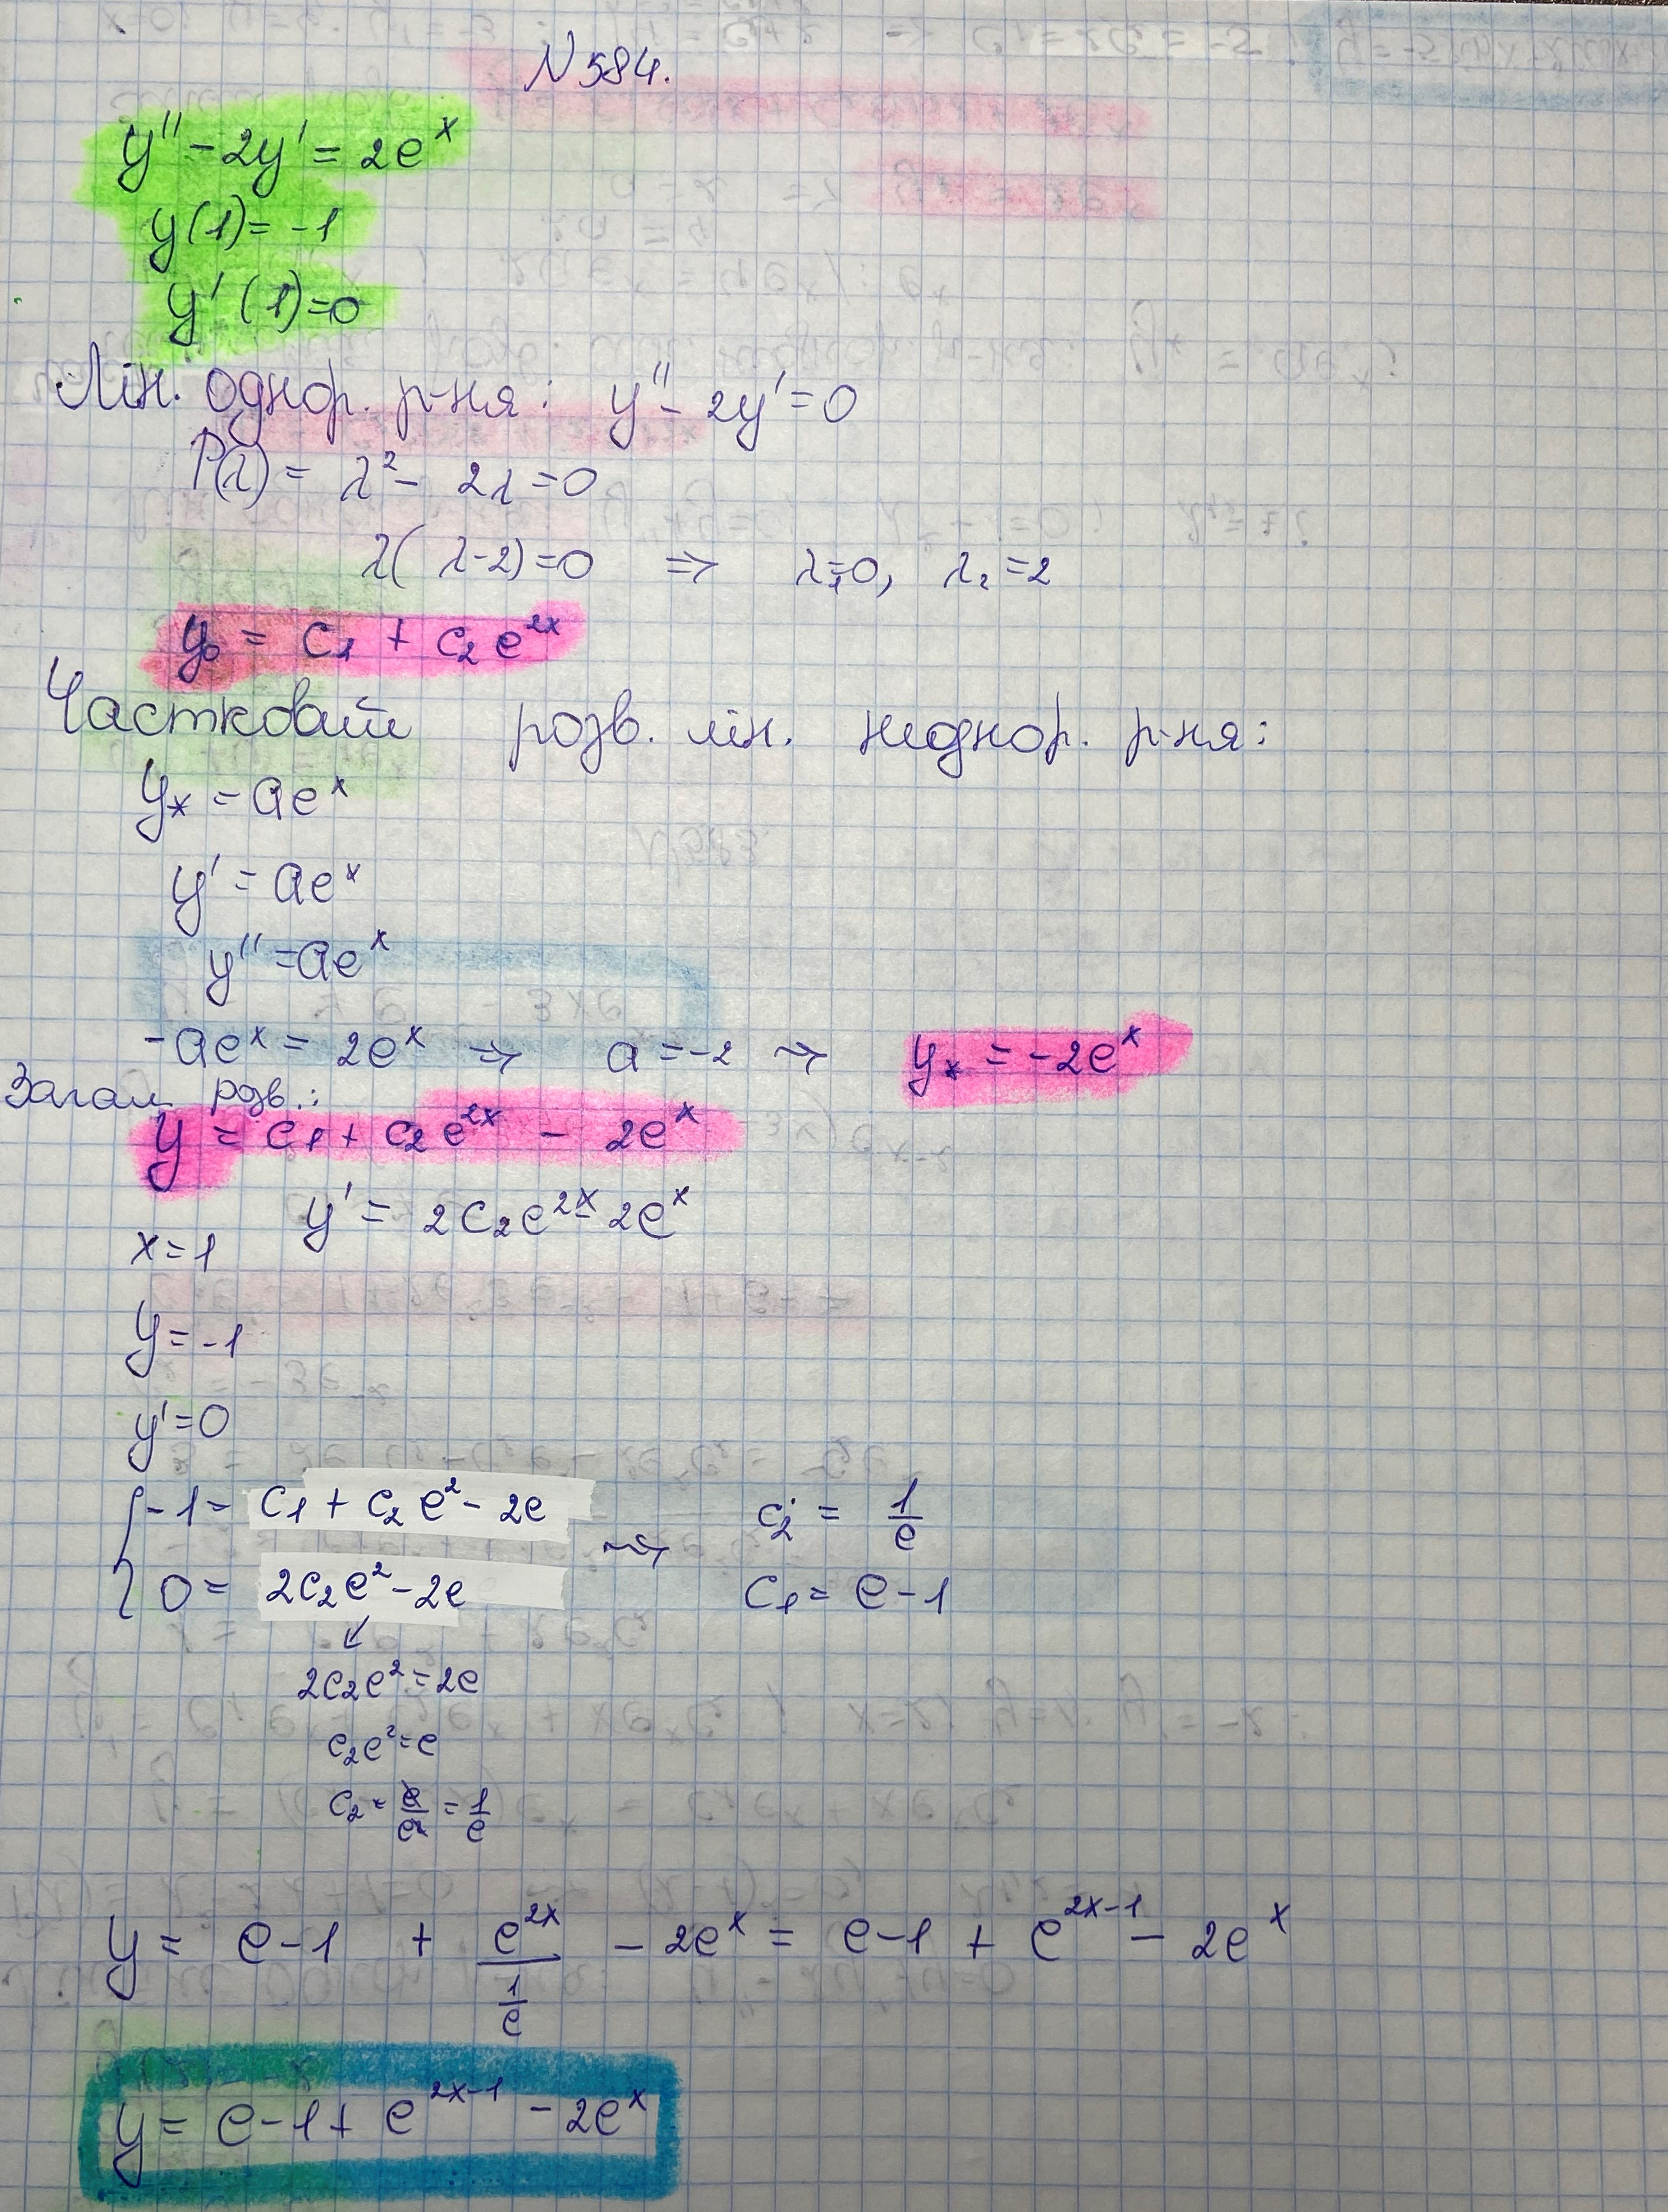 N 584.
y'' - 2y' = 2e^x
y(1) = -1
y'(1)=0
Лін. однор. р-ня: y'' - 2y' = 0
P(λ) = λ² - 2λ = 0
λ(λ-2)=0 ⇒ λ₁=0, λ₂=2
y₀ = C₁ + C₂ e^{2x}
Частковий розв. лін. неоднор. р-ня:
y* = ae^x
y' = ae^x
y'' = ae^x
-ae^x = 2e^x ⇒ a = -2 ⇒ y* = -2e^x
Загал розв.:
y = C₁ + C₂e^{2x} - 2e^x
y' = 2C₂e^{2x} - 2e^x
x = 1
y = -1
y' = 0
{ -1 = C₁ + C₂e² - 2e ⇒ C₂ = 1/e
0 = 2C₂e² - 2e C₁ = e - 1
↙
2C₂e² = 2e
C₂e² = e
C₂ = e/e² = 1/e
y = e-1 + e^{2x}/(1/e) - 2e^x = e-1 + e^{2x-1} - 2e^x
y = e-1 + e^{2x-1} - 2e^x